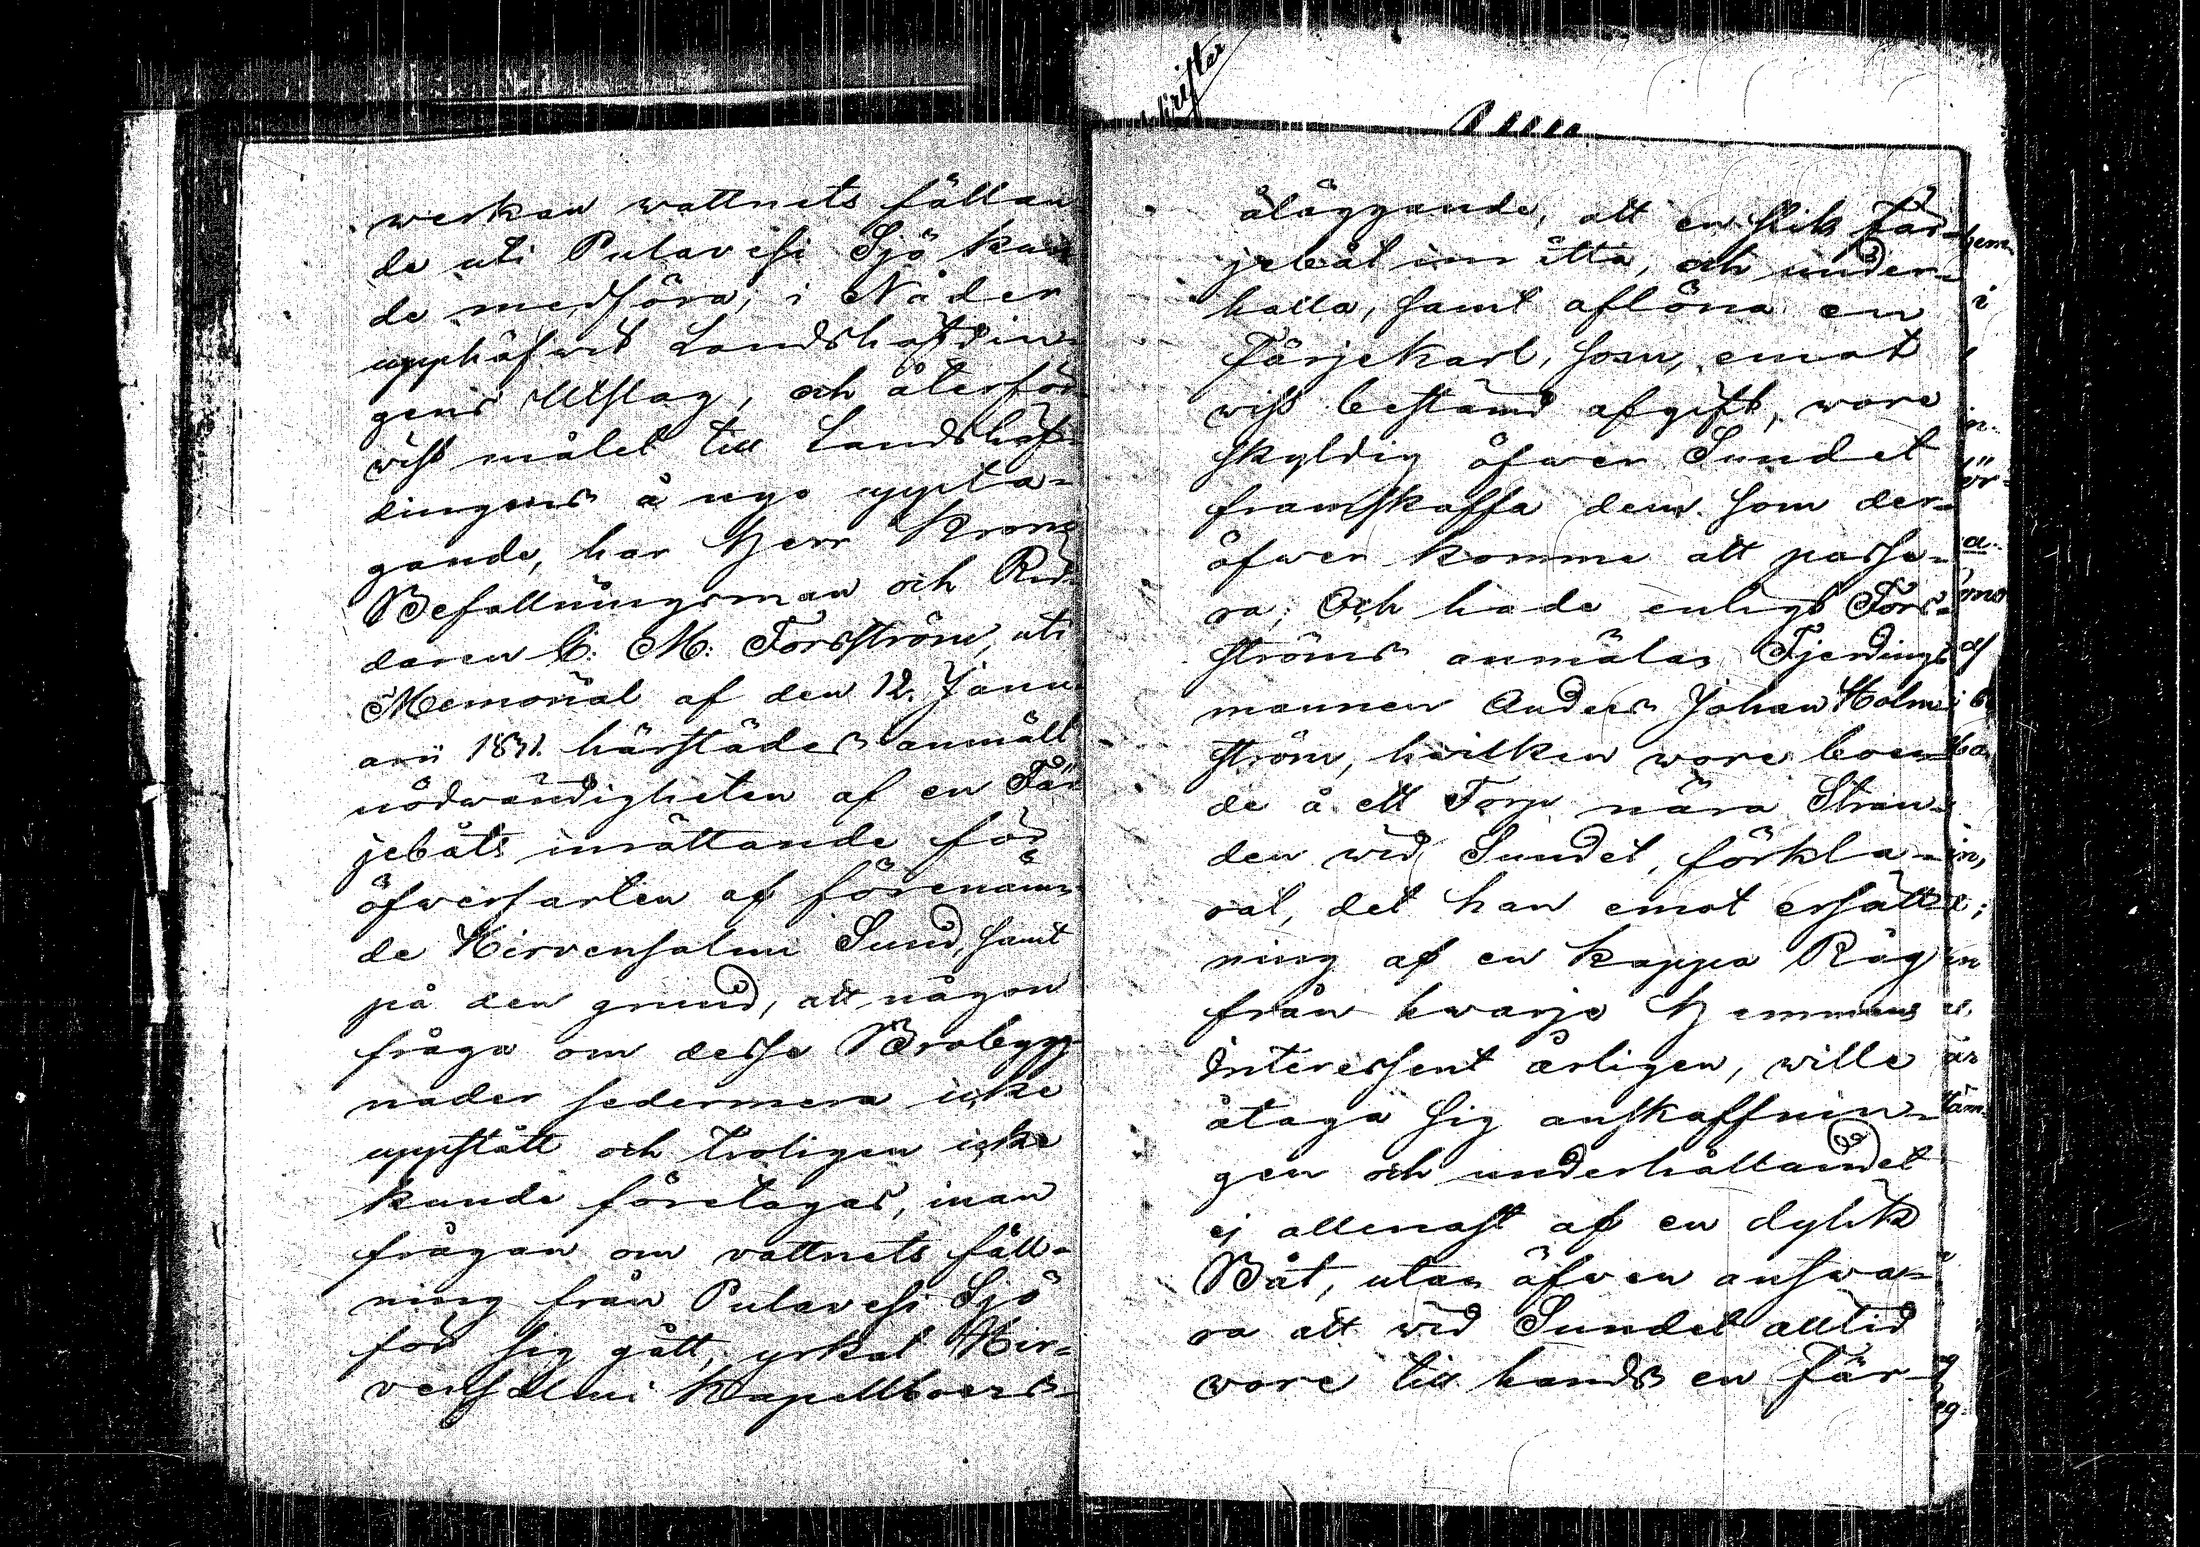 werkan wattnets fällan
de uti Pulavesi Sjö kun
de medföra, i Nåder
upphäfwit Landshöfdin-
gens Utslag, och återför-
vist målet till Landshöf-
dingens å nyo uppta-
gande, har Herr Krono
Befallningsman och Rid-
daren C: M: Forsström, uti
Memorial af den 12. Janu-
arii 1831. härstädes anmält
nödwändigheten af en Fär
jebåts inrättande för
öfwerfarten af förenämn-
de Hirvensalmi Sund, samt
på den grund, att någon
fråga om desse Brobygg-
nader sedermera icke
uppstått och troligen icke
kunde företagas, innan
frågan om vattnets fäll-
ning från Pulavesi Sjö
för sig gått, yrkat Hir-
vensalmi Kapellboers
åläggande, att en slik Fär-
jebåt inrätta, och under-
hålla, samt aflöna en
Färjekarl, som, emot
wiss bestämd afgift, wore
skyldig öfwer Sundet
framskaffa dem som der-
öfwer komme att passe-
ra; Och hade enligt Fors-
ströms anmälan Fjerdings
mannen Anders Johan Holm-
ström, hwilken wore boen-
de å ett Torp nära Stran-
den wid Sundet, förkla-
rat, det han emot ersätt-
ning af en kappa Råg
från hwarje Hemmans
Interessent årligen, wille
åtaga sig anskaffnin-
gen och underhållandet
ej allenast af en dylik
Båt, utan äfwen answa-
ra att wid Sundet alltid
wore till hands en Fär-